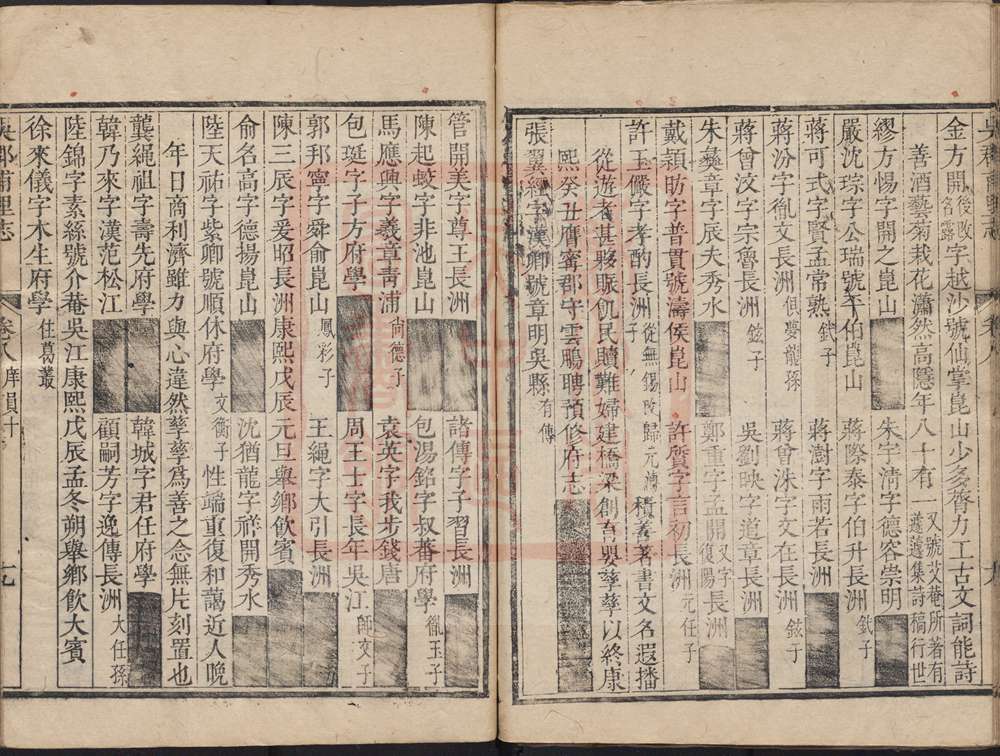 金方開後改名露字越沙號仙掌崑山少多膂力工古文詞能詩
善酒藝菊栽花瀟然高隱年八十有一又號艾菴所著有蘧蘧集詩稿行世
繆方惕字開之崑山 朱宇清字德容崇明
嚴沈琮字公瑞號平伯崑山 蔣際泰字伯升長洲釴子
蔣可式字賢孟常熟釴子 蔣澍字雨若長洲
蔣汾字胤文長洲伯夢龍孫 蔣會洙字文在長洲鉉子
蔣會汶字宗魯長洲鉉子 吳劉映字道章長洲
朱彝章字辰夫秀水 鄭重字孟開又字復陽長洲
戴穎昉字普貫號濤侯崑山 許賡字言初長洲元任子
許玉儼字孝酌長洲從無錫改歸元溥子 積善著書文名遐播
從遊者甚夥賑飢民贖難婦建橋梁創吾嬰孳孳以終康
熙癸丑膺甯郡守雲鵬聘預修府志
張翼經字漢卿號章明吳縣有傳
管開美字尊王長洲 諸傳字子習長洲
陳起蛟字非池崑山 包湯銘字叔蕃府學胤玉子
馬應興字羲章青浦尚德子 袁英字我步錢唐
包珽字子方府學 周王士字長年吳江師文子
郭邦寧字舜俞崑山鳳彩子 王繩字大引長洲
陳三辰字爰昭長洲康熙戊辰元旦舉鄉飲賓
俞名高字德揚崑山 沈猶龍字祥開秀水
陸天祐字紫卿號順休府學文衡子 性端重復和藹近人晚
年日商利濟雖力與心違然孳孳爲善之念無片刻置也
龔繩祖字壽先府學 韓城字君任府學
韓乃來字漢范松江 顧嗣芳字逸傳長洲大任孫
陸錦字素絲號介菴吳江康熙戊辰孟冬朔舉鄉飲大賓
徐來儀字木生府學任葛叢
吳郡甫里志 卷八庠韻十 十九